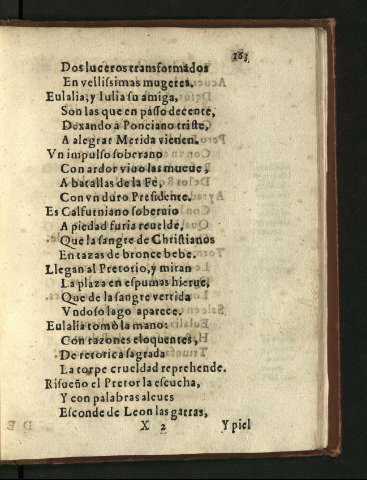 163
Dos luceros transformados
En vellissimas mugeres.
Eulalia, y Iulia su amiga,
Son las que en passo decente,
Dexando à Ponciano triste,
A alegrar Merida vienen.
Vn impulso soberano
Con ardor viuo las mueue,
A batallas de la Fè,
Con vn duro Presidente.
Es Calfurniano soberuio
A piedad furia reuelde,
Que la sangre de Christianos
En tazas de bronce bebe.
Llegan al Pretorio, y miran
La plaza en espumas hierue,
Que de la sangre vertida
Vndoso lago aparece.
Eulalia tomò la mano:
Con razones eloquentes,
De retorica sagrada
La torpe crueldad reprehende.
Risueño el Pretor la escucha,
Y con palabras aleues
Esconde de Leon las garras,
X 2 Y piel